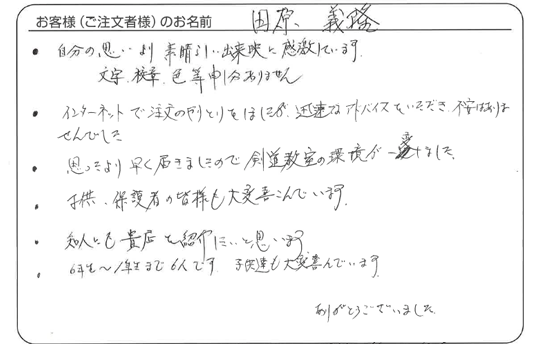 お客様（ご注文者様）のお名前 田原 義隆
・自分の思いより素晴らしい出来映に感激しています。
文字、校章、色等申し分ありません
・インターネットで注文のやりとりをしましたが、迅速なアドバイスをいただき、不安はありま
せんでした
・思ったより早く届きましたので剣道教室の環境が一変しました。
・子供、保護者の皆様も大変喜こんでいます。
・知人にも貴店を紹介したいと思います。
・6年生〜1年生まで6人です 子供達も大変喜んでいます。
ありがとうございました。